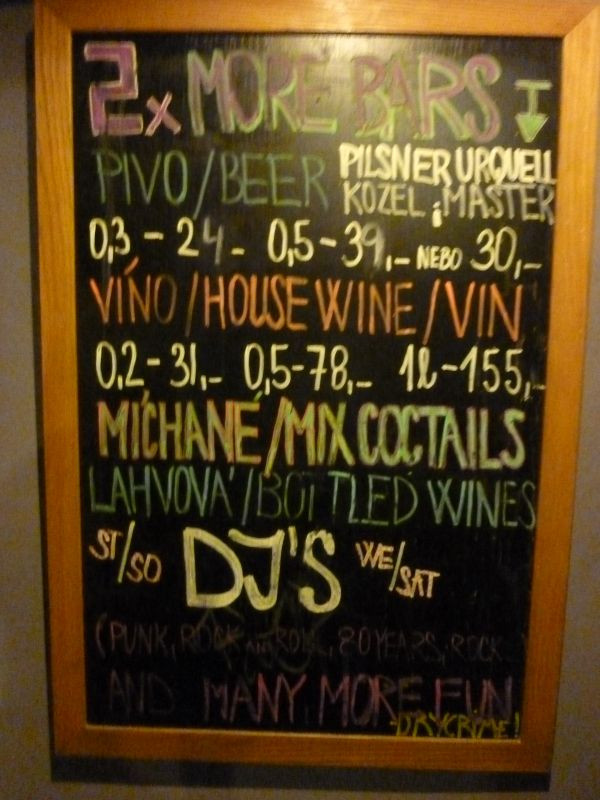 2x MORE BARS
PIVO/BEER PILSNER URQUELL
KOZEL i MASTER
0,3 - 24- 0,5 - 39,- NEBO 30,-
VÍNO/HOUSE WINE/VIN
0,2 - 31,- 0,5 - 78,- 1l - 155,-
MÍCHANÉ/MIX COCTAILS
LAHVOVÁ/BOTTLED WINES
ST/SO DJ'S WE/SAT
(PUNK, ROCK AND ROLL, 80 YEARS, ROCK...)
AND MANY MORE FUN